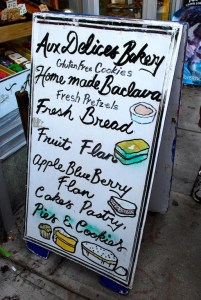 Aux Delices Bakery
Gluten Free Cookies
Home made Baclava
Fresh Pretzels
Fresh Bread
Fruit Flan
Apple Blue Berry
Flan
Cakes Pastry,
Pies & Cookies